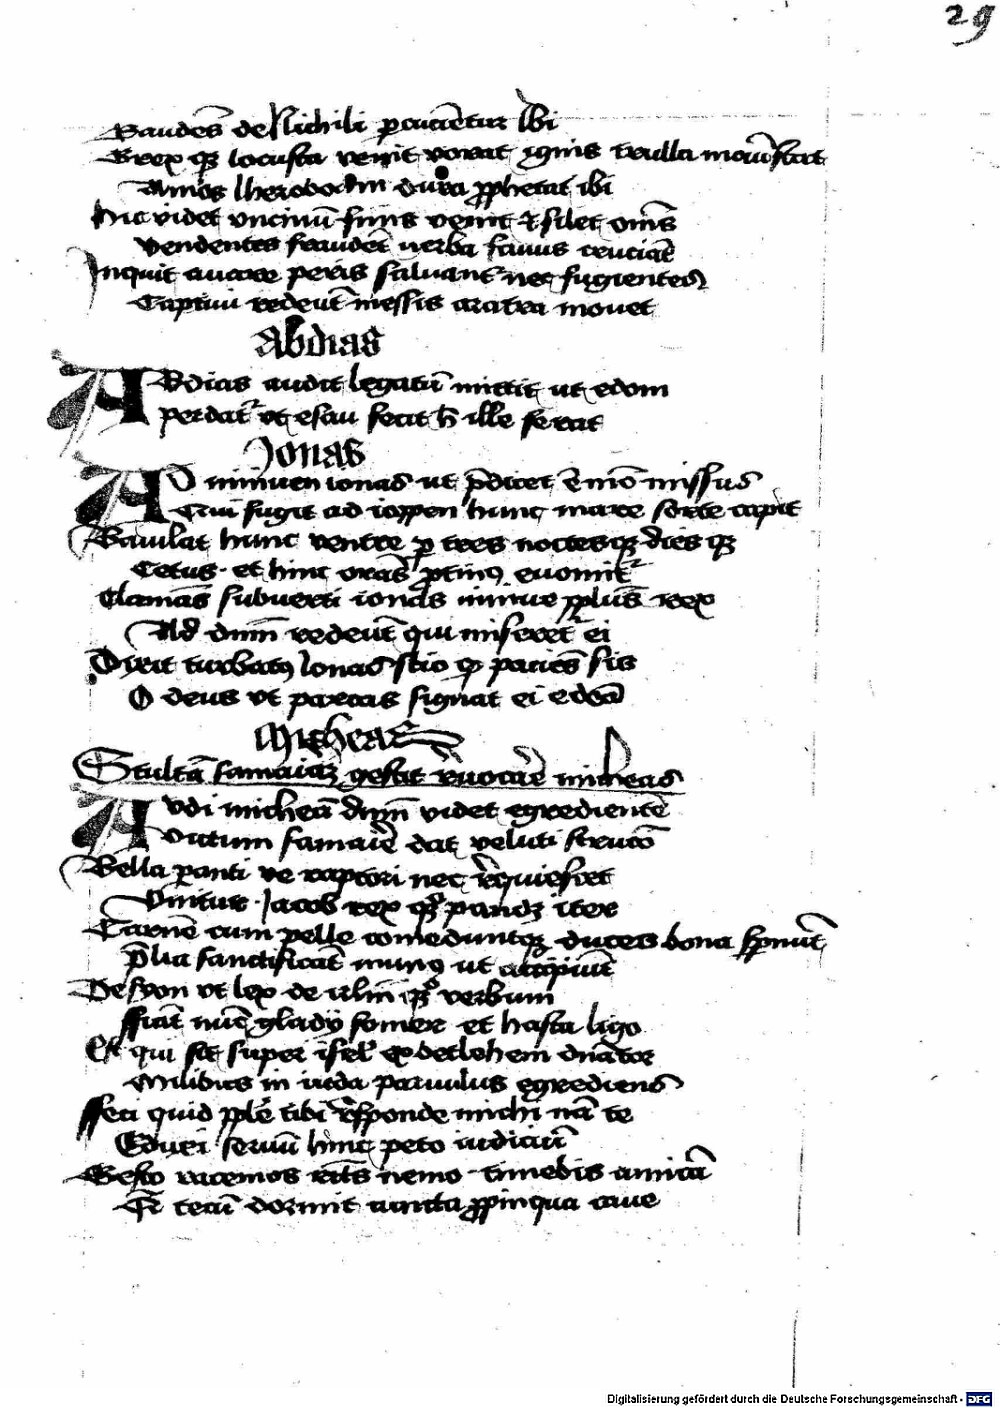 29
Gaudēs de Nichili ꝑcuciētur ibi
Grex qꝫ locusta venit vorat ignis trulla
Amos Iherobodm dura ꝓphetat ibi
Hic videt vncinū finis venit & silet omīs
vendentes fraudēt verba famis cruciāt
Inquit aurore peris saluant nec fugientes
Captiui redeūt messis aratra mouet
Abdias
ABdias audit legatū mittit ut edom
perdat vt esau fecit h̄ ille ferat
Jonas
AD niniuen ionas ut p̄dicet ē missus
Qui fugit ad ioppen hunc mare sorte capit
Baiulat hunc ventre ꝑ tres noctesqꝫ diesqꝫ
Cetus et hinc orās ꝓtinꝰ euomit
Clamās subuerti ionas niniue pplūs rex
Ad dnm̄ redeūt qui miseret ei
Dixit turbatꝰ Ionas scio qꝫ paciēs sis
O deus vt parcas signat ei edeā
Micheas
Stultā samariaꝫ gestit reuocare micheas
AVdi micheā dnm̄ videt egredientē
Victum samariē dat veluti structō
Bella ꝑanti ve raptori nec requiescet
Vnitur Jacob rex panditꝫ iter
Carnē cum pelle comeduntqꝫ duces bona spernūt
P̄lia sanctificāt munꝰ ut accipiūt
De syon vt lex de irlm̄ verbum
fficit nūc gladij fomer et hasta ligo
Et qui sit super isrl̄ ex betlehem dn̄ator
Milibus in iuda paruulus egrediens
ffeci quid pplē tibi respondé michi nā te
Eduxi seruiū hinc peto iudiciū
Gesto racemos nemo timebis amicā
Et tecū dormit cuncta ꝓpinqua caue
Digitalisierung gefördert durch die Deutsche Forschungsgemeinschaft - DFG